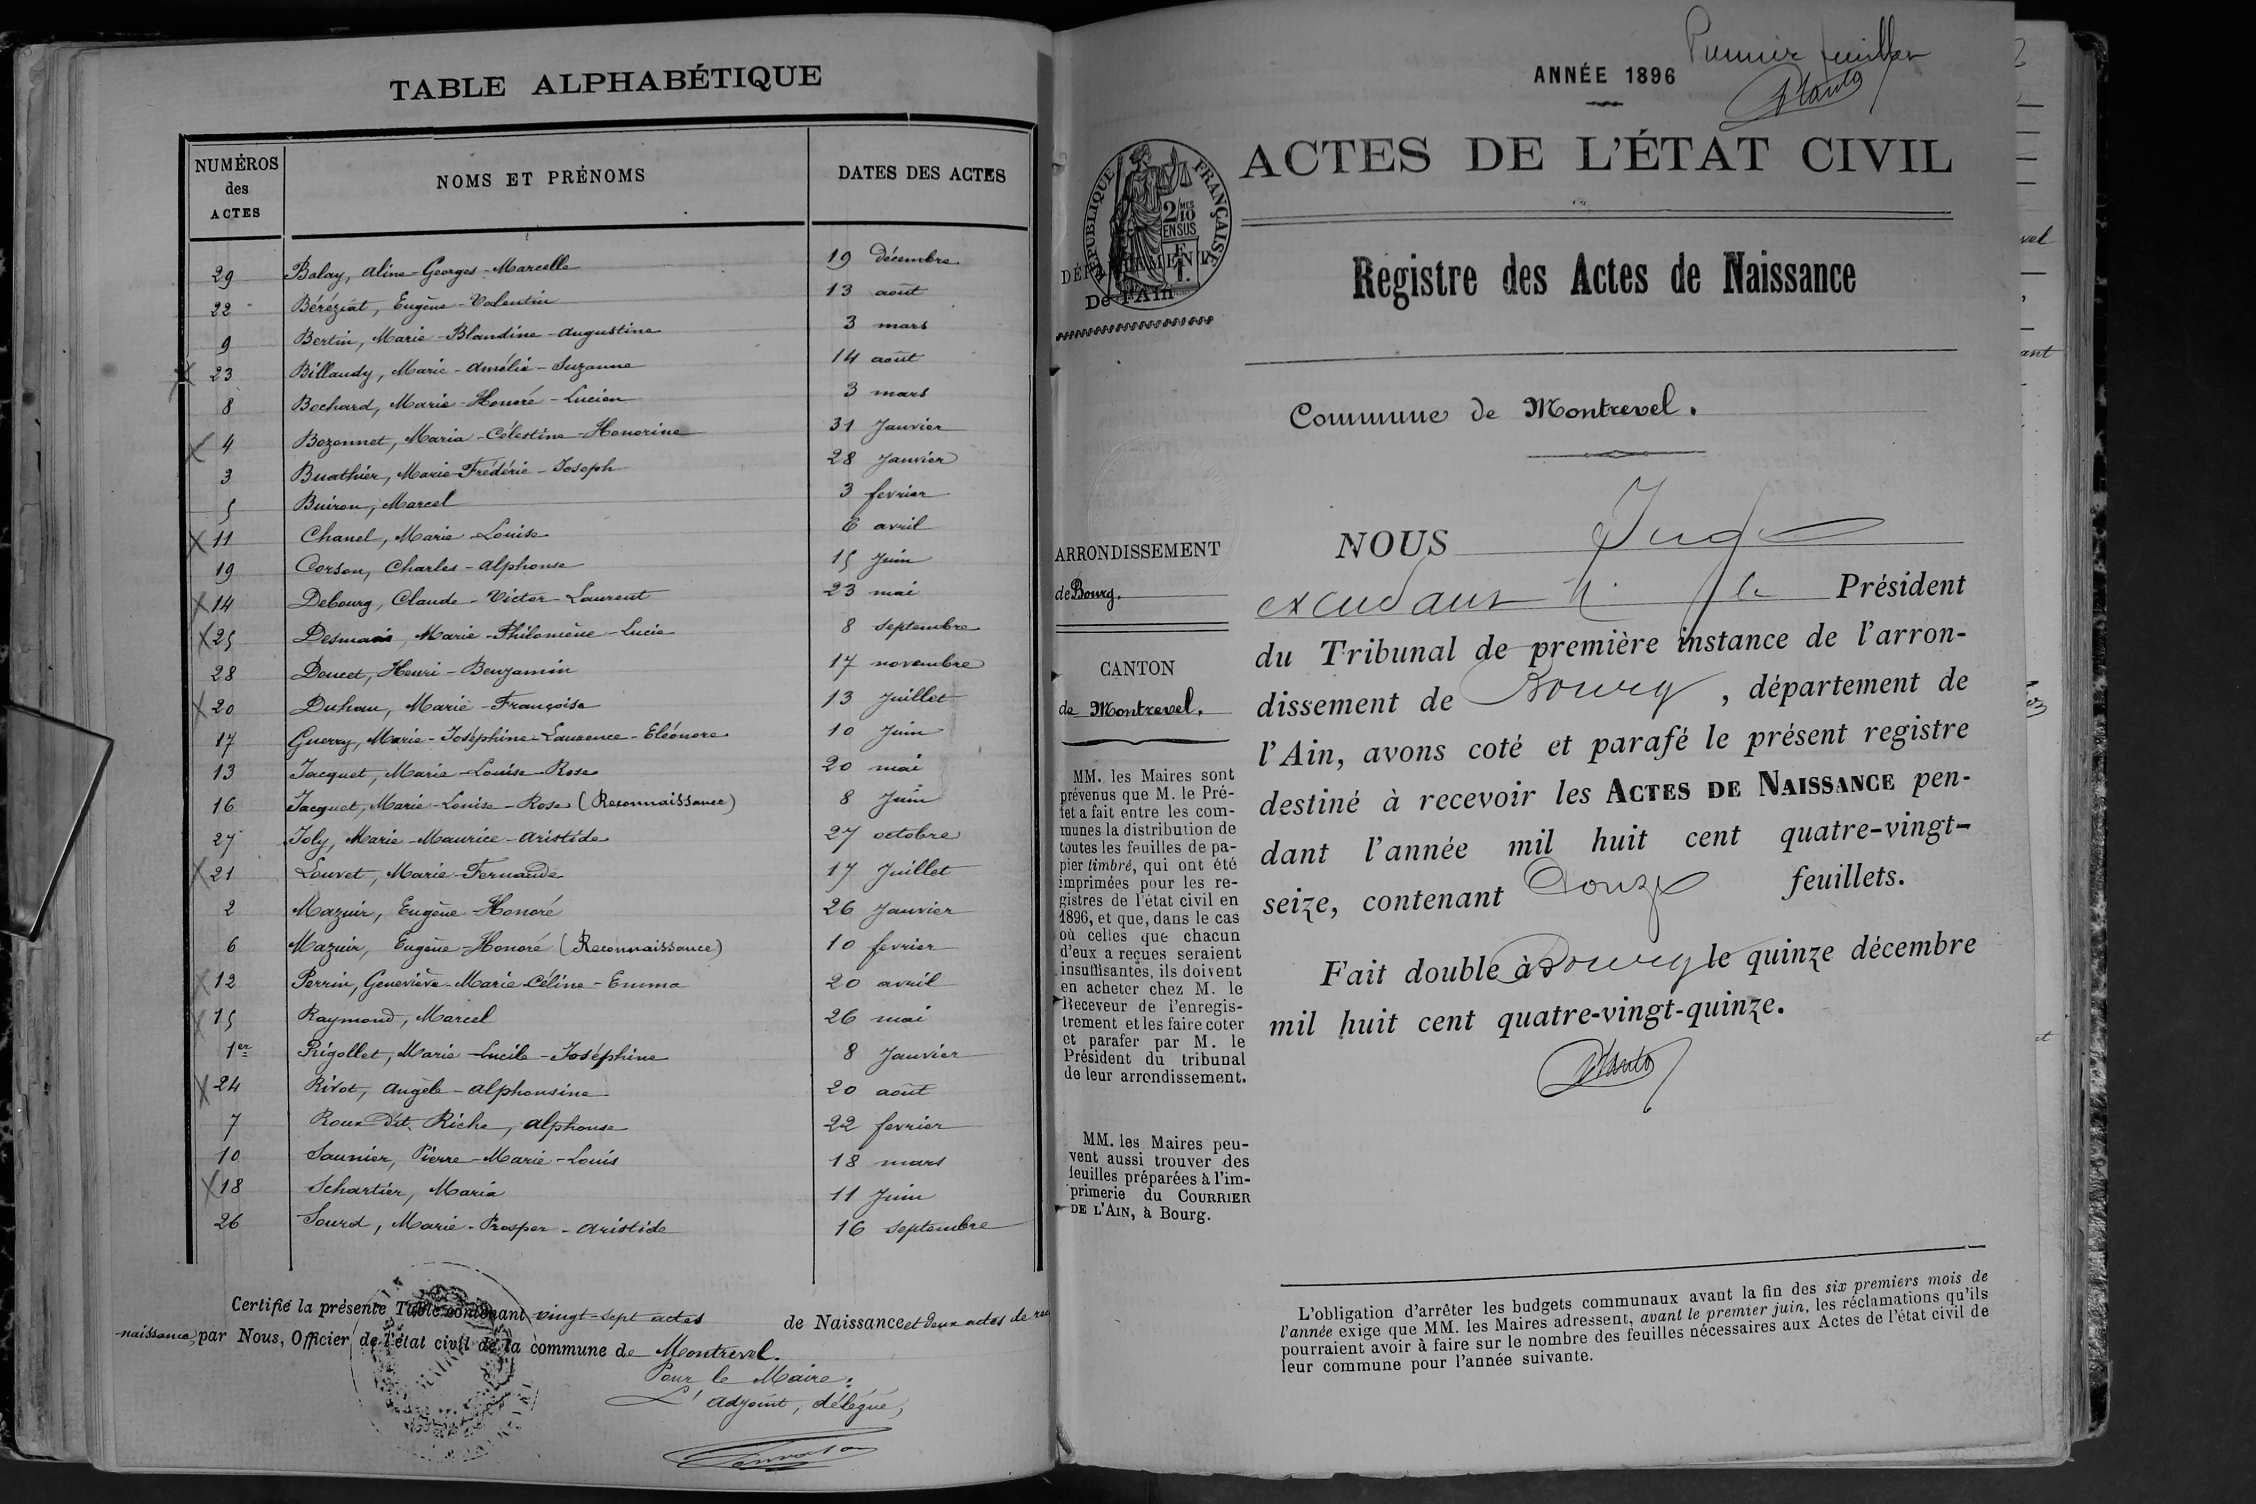 TABLE ALPHABÉTIQUE
NUMÉROS des ACTES | NOMS ET PRÉNOMS | DATES DES ACTES
29 Balay, Aline-Georges-Marcelle 19 décembre
22 Béréziat, Eugène-Valentin 13 août
9 Bertin, Marie-Blandine-Augustine 3 mars
23 Billaudy, Marie-Amélie-Suzanne 14 août
8 Bochard, Marie-Honoré-Lucien 3 mars
4 Bozonnet, Maria-Célestine-Honorine 31 Janvier
3 Buathier, Marie-Frédéric-Joseph 28 Janvier
5 Buiron, Marcel 3 fevrier
11 Chanel, Marie-Louise 6 avril
19 Corson, Charles-Alphonse 15 Juin
14 Debourg, Claude-Victor-Laurent 23 mai
25 Desmaris, Marie-Philomène-Lucie 8 septembre
28 Doucet, Henri-Benjamin 17 novembre
20 Duhau, Marie-Françoise 13 Juillet
17 Guerry, Marie-Joséphine-Laurence-Eléonore 10 Juin
13 Jacquet, Marie-Louise-Rose 20 mai
16 Jacquet, Marie-Louise-Rose (Reconnaissance) 8 Juin
27 Joly, Marie-Maurice-Aristide 27 octobre
21 Louvet, Marie-Fernande 17 Juillet
2 Mazuir, Eugène-Honoré 26 Janvier
6 Mazuir, Eugène-Honoré (Reconnaissance) 10 fevrier
12 Perrin, Geneviève-Marie-Céline-Emma 20 avril
15 Raymond, Marcel 26 mai
1er Rigollet, Marie-Lucile-Joséphine 8 Janvier
24 Rivot, Angèle-Alphonsine 20 août
7 Roux Dit Riche, Alphonse 22 fevrier
10 Saunier, Pierre-Marie-Louis 18 mars
18 Schartier, Maria 11 Juin
26 Sourd, Marie-Prosper-Aristide 16 septembre
Certifié la présente Table contenant vingt-sept actes de Naissance et deux actes de rec
naissance, par Nous, Officier de l'état civil de la commune de Montrevel.
Pour le Maire:
L'adjoint, délégué,
Premier feuillet
ANNÉE 1896
ACTES DE L'ÉTAT CIVIL
RÉPUBLIQUE FRANÇAISE
2/10 MES
EN SUS
DÉPARTEMENT
De l'Ain
Registre des Actes de Naissance
Commune de Montrevel.
ARRONDISSEMENT
de Bourg.
CANTON
de Montrevel.
MM. les Maires sont
prévenus que M. le Pré-
fet a fait entre les com-
munes la distribution de
toutes les feuilles de pa-
pier timbré, qui ont été
imprimées pour les re-
gistres de l'état civil en
1896, et que, dans le cas
où celles que chacun
d'eux a reçues seraient
insuffisantes, ils doivent
en acheter chez M. le
Receveur de l'enregis-
trement et les faire coter
et parafer par M. le
Président du tribunal
de leur arrondissement.
MM. les Maires peu-
vent aussi trouver des
feuilles préparées à l'im-
primerie du COURRIER
DE L'AIN, à Bourg.
NOUS Juge
le Président
du Tribunal de première instance de l'arron-
dissement de Bourg, département de
l'Ain, avons coté et parafé le présent registre
destiné à recevoir les ACTES DE NAISSANCE pen-
dant l'année mil huit cent quatre-vingt-
seize, contenant Douze feuillets.
Fait double à Bourg le quinze décembre
mil huit cent quatre-vingt-quinze.
L'obligation d'arrêter les budgets communaux avant la fin des six premiers mois de
l'année exige que MM. les Maires adressent, avant le premier juin, les réclamations qu'ils
pourraient avoir à faire sur le nombre des feuilles nécessaires aux Actes de l'état civil de
leur commune pour l'année suivante.